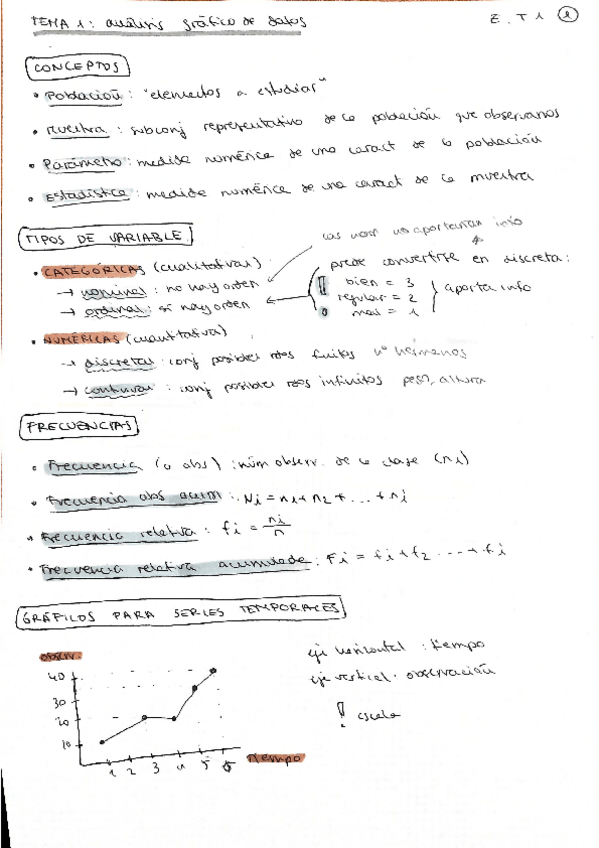 TEMA 1: análisis gráfico de datos
E. T 1 1
CONCEPTOS
• Población: "elementos a estudiar"
• muestra: subconj representativo de la población que observamos
• Parámetro: medida numérica de una caract de la población
• Estadística: medida numérica de una caract de la muestra
TIPOS DE VARIABLE
no aportarían info
• CATEGÓRICAS (cualitativas)
puede convertirse en discreta:
→ nominal: no hay orden
bien = 3
→ ordinal: sí hay orden
regular = 2
aporta info
mal = 1
• NUMÉRICAS (cuantitativa)
→ discretas: conj posibles rdos finitos nº hermanos
→ continuas: conj posibles rdos infinitos peso, altura
FRECUENCIAS
• Frecuencia (o abs): núm observ. de la clase (ni)
• Frecuencia abs acum: Ni = n1+ n2 + ... + ni
• Frecuencia relativa: fi = ni/n
• Frecuencia relativa acumulada: Fi = fi + f2 ... + fi
GRÁFICOS PARA SERIES TEMPORALES
observ.
eje horizontal: tiempo
eje vertical: observación
! escala
40
30
20
10
1 2 3 4 5 6
tiempo